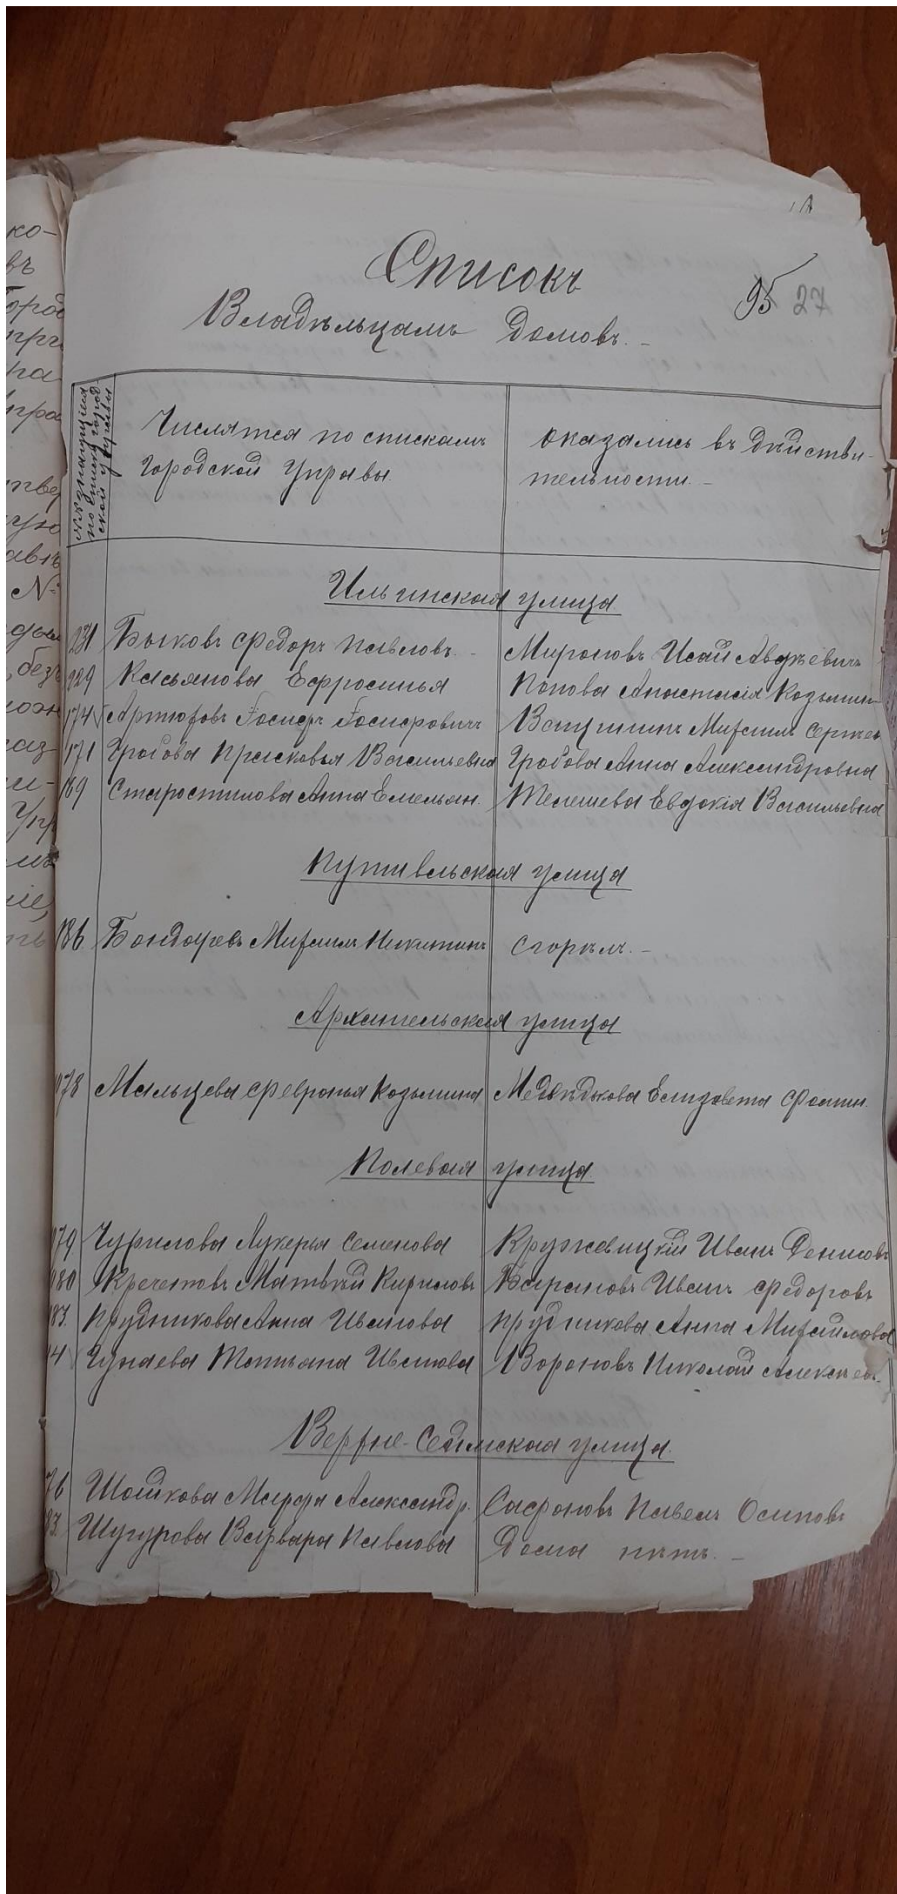 Списокъ
95 27
Владѣльцамъ домовъ. -
№№ значущiяся
по списку город-
ской управы
Числятся по спискамъ
Городской Управы
оказались въ дѣйстви-
тельности. -
Ильинская улица
231 Быковъ Федоръ Павловъ. Мироновъ Исай Авдѣевичъ
229 Касьянова Ефросинья Попова Анастасiя Козьмин-
174 Артюховъ Іосифъ Іосифовичъ Вагунинъ Михаилъ Сергѣев
171 Гробова Прасковья Васильевна Гробова Анна Александровна
169 Старостилова Анна Емельян. Телешева Евдокiя Васильевна
Путивльская улица
186 Бондаревъ Михаилъ Никитинъ сгорѣлъ. -
Архангельская улица
178 Мальцева Февронья Козьмина Медвѣдкова Елизовета Фомин.
Полевая улица
79 Чурилова Лукерья Семенова Кружевицкiй Иванъ Денисовъ
80 Кречетовъ Матвѣй Кириловъ Барановъ Иванъ Федоровъ
83. Прудникова Анна Иванова Прудникова Анна Михайлова
4 Чунаева Татьяна Иванова Вороновъ Николай Алексѣев.
Верхне-Сеймская улица
76 Шашкова Марфа Александр. Сафоновъ Павелъ Осиповъ
93. Шугурова Варвара Павлова Дома нѣтъ. -